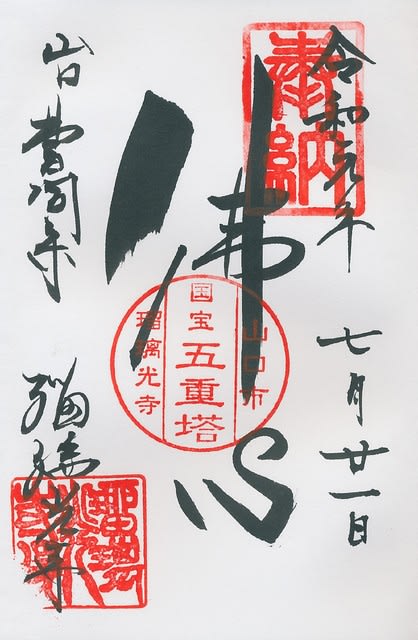 奉納
令和元年
七月廿一日
佛心
山口市
国宝
五重塔
瑠璃光寺
山口
曹洞宗
瑠璃光寺